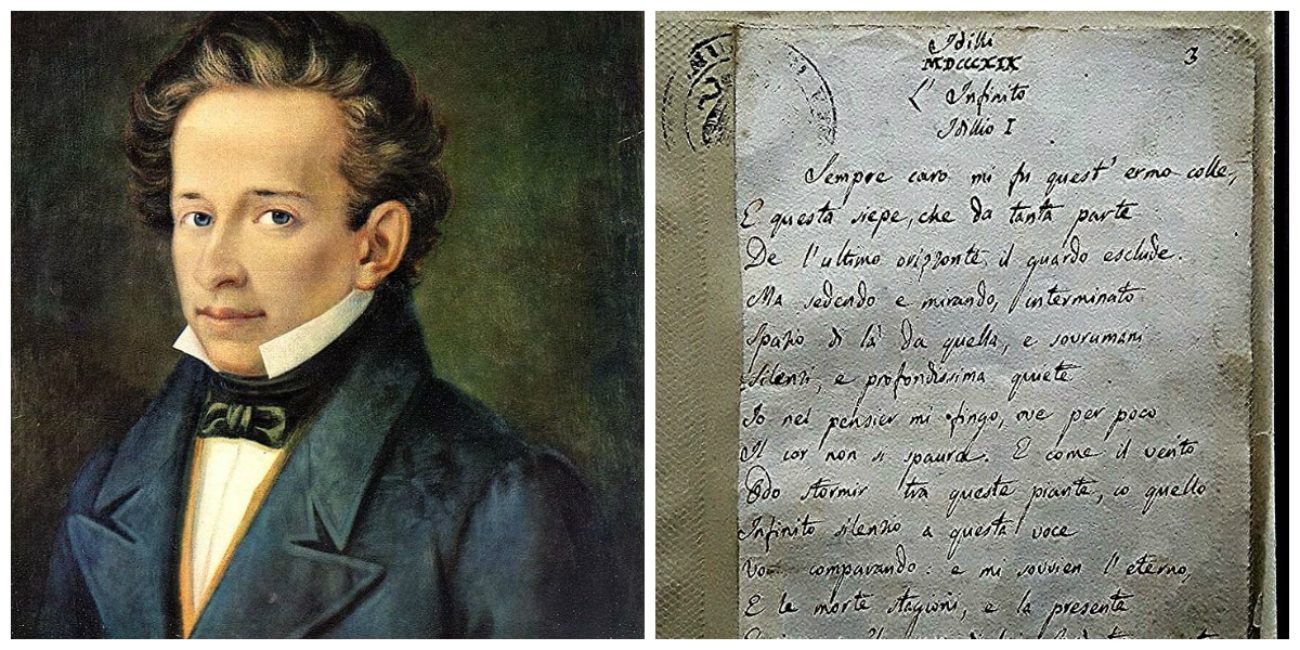 Idilli
MDCCCXIX
3
L' Infinito
Idillio I
Sempre caro mi fu quest' ermo colle,
E questa siepe, che da tanta parte
De l'ultimo orizzonte il guardo esclude.
Ma sedendo e mirando, interminato
Spazio di là da quella, e sovrumani
Silenzi, e profondissima quiete
Io nel pensier mi fingo, ove per poco
Il cor non si spaura. E come il vento
Odo stormir tra queste piante, io quello
Infinito silenzio a questa voce
Vo comparando: e mi sovvien l'eterno,
E le morte stagioni, e la presente